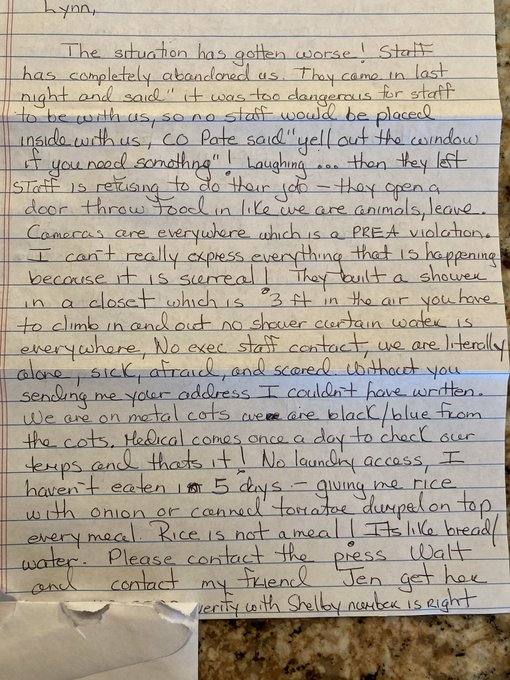 Lynn,
The situation has gotten worse! Staff
has completely abandoned us. They came in last
night and said" it was too dangerous for staff
to be with us, so no staff would be placed
inside with us, CO Pate said "yell out the window
if you need something"! Laughing... then they left
Staff is refusing to do their job - they open a
door throw food in like we are animals, leave.
Cameras are everywhere which is a PREA violation.
I can't really express everything that is happening
because it is surreal! They built a shower
in a closet which is 3 ft in the air you have
to climb in and out no shower curtain water is
everywhere, No exec staff contact, we are literally
alone, sick, afraid, and scared. Without you
sending me your address I couldn't have written.
We are on metal cots we are black/blue from
the cots. Medical comes once a day to check our
temps and thats it! No laundry access, I
haven't eaten in 5 days - giving me rice
with onion or canned tomatoe dumped on top
every meal. Rice is not a meal! Its like bread/
water. Please contact the press Walt
and contact my friend Jen get her
verity with Shelby number is right